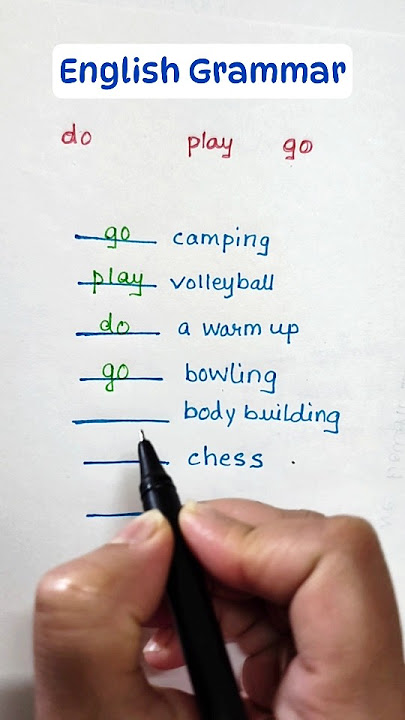 English Grammar
do play go
go camping
play volleyball
do a warm up
go bowling
body building
chess